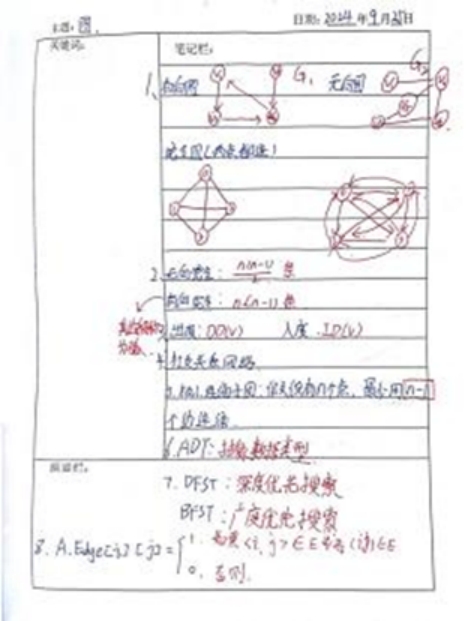 主题: 图.
日期: 2024年9月25日
关键词:
笔记栏:
1、有向图 G₁ 无向图 G₂
完全图(两点都连)
2. 无向完全: n(n-1)/2 条
有向完全: n(n-1) 条
出度: OD(v) 入度: ID(v)
4. 打交
个边连结.
6. ADT: 抽象数据类型
摘要栏:
7. DFST: 深度优先搜索
BFST: 广度优先搜索
8. A.Edge[i][j] = { 1. 若<i, j>∈E或(i,j)∈E
0. 否则.